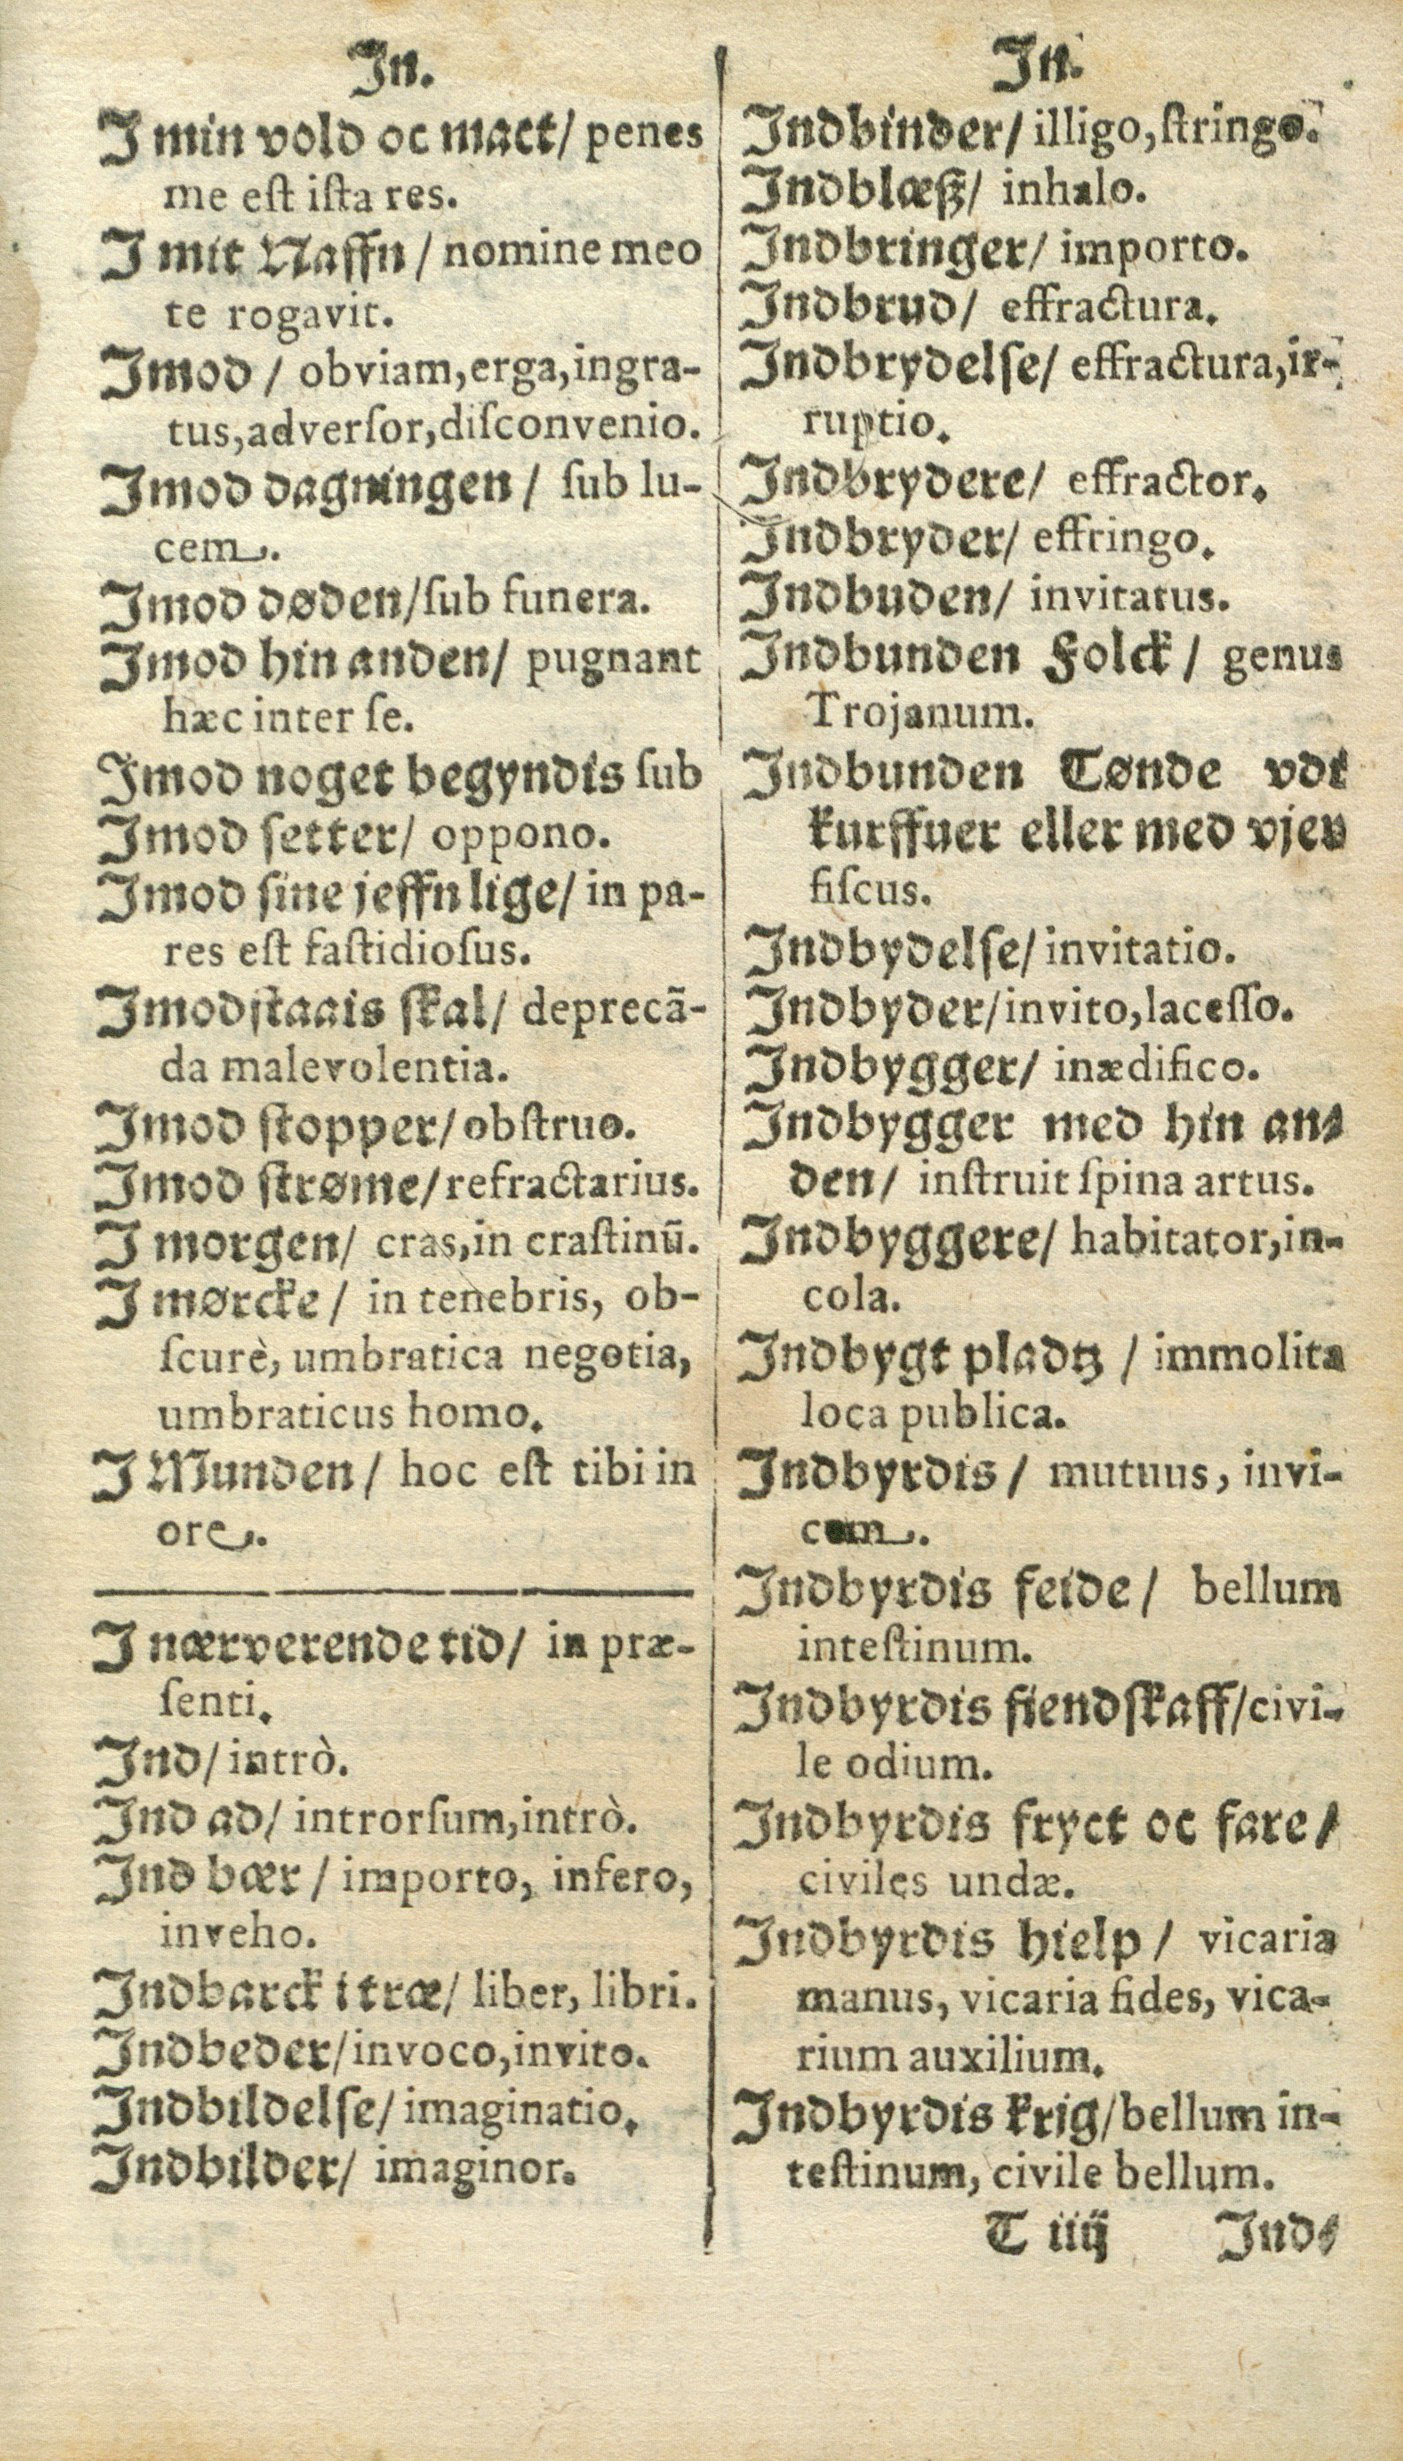 In.
I min vold oc mact/ penes
me eſt iſta res.
I mit Naffn / nomine meo
te rogavit.
Imod / obviam, erga, ingra-
tus, adverſor, diſconvenio.
Imod dagningen / ſub lu-
cem.
Imod døden/ ſub funera.
Imod hin anden/ pugnant
hæc inter ſe.
Imod noget begyndis ſub
Imod ſetter/ oppono.
Imod ſine jeffnlige/ in pa-
res eſt faſtidioſus.
Imodſtaais ſkal/ deprecã-
da malevolentia.
Imod ſtopper/ obſtruo.
Imod ſtrøme/ refractarius.
I morgen/ cras, in craſtinũ.
I mørcke / in tenebris, ob-
ſcurè, umbratica negotia,
umbraticus homo.
I Munden / hoc eſt tibi in
ore.
I nærverende tid/ in præ-
ſenti.
Ind/ intrò.
Ind ad/ introrſum, intrò.
Ind bær / importo, infero,
inveho.
Indbarck i træ/ liber, libri.
Indbeder/ invoco, invito.
Indbildelſe/ imaginatio.
Indbilder/ imaginor.
In.
Indbinder/ illigo, ſtringo.
Indblæſʒ/ inhalo.
Indbringer/ importo.
Indbrud/ effractura.
Indbrydelſe/ effractura, ir-
ruptio.
Indbrydere/ effractor.
Indbryder/ effringo.
Indbuden/ invitatus.
Indbunden Folck / genus
Trojanum.
Indbunden Tønde vdi
kurffuer eller med vjen
fiſcus.
Indbydelſe/ invitatio.
Indbyder/ invito, laceſſo.
Indbygger/ inædifico.
Indbygger med hin an⸗
den/ inſtruit ſpina artus.
Indbyggere/ habitator, in-
cola.
Indbygt pladtʒ / immolita
loca publica.
Indbyrdis / mutuus, invi-
cem.
Indbyrdis feide / bellum
inteſtinum.
Indbyrdis fiendſkaff/ civi-
le odium.
Indbyrdis fryct oc fare /
civiles undæ.
Indbyrdis hielp / vicaria
manus, vicaria fides, vica-
rium auxilium.
Indbyrdis krig/ bellum in-
teſtinum, civile bellum.
T iiij Ind⸗